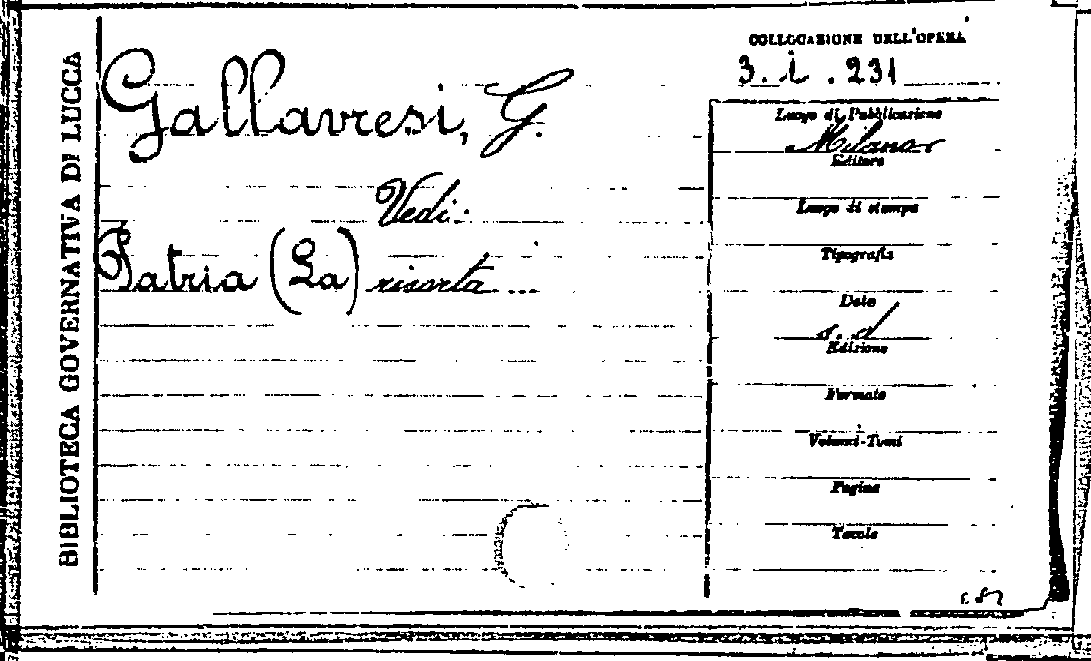 BIBLIOTECA GOVERNATIVA DI LUCCA
Gallavresi, G.
Vedi:
Patria (La) risorta ...
COLLOCAZIONE DELL'OPERA
3. i. 231
Luogo di Pubblicazione
Milano
Editore
Luogo di stampa
Tipografia
Data
s. d
Edizione
Formato
Volumi-Tomi
Pagine
Tavole